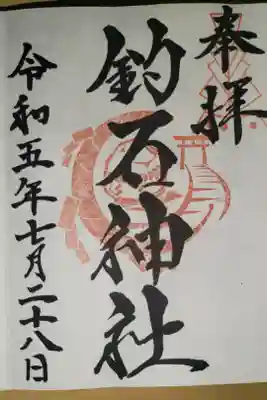 奉拝
釣石神社
令和五年七月二十八日